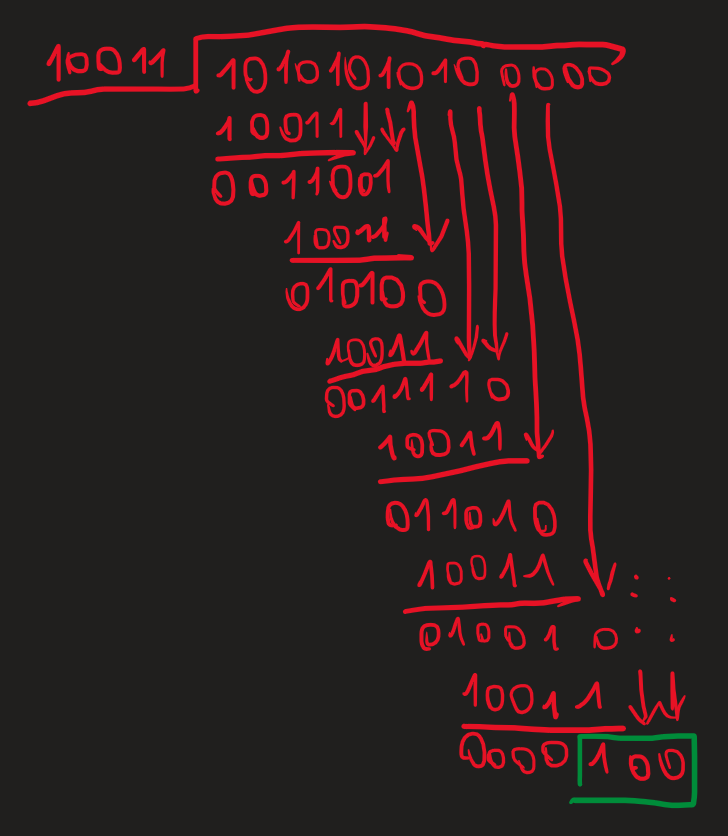 10011 1010101010 0000
10011
0011001
10011
010100
10011
0011110
10011
011010
10011
010010
10011
0000100